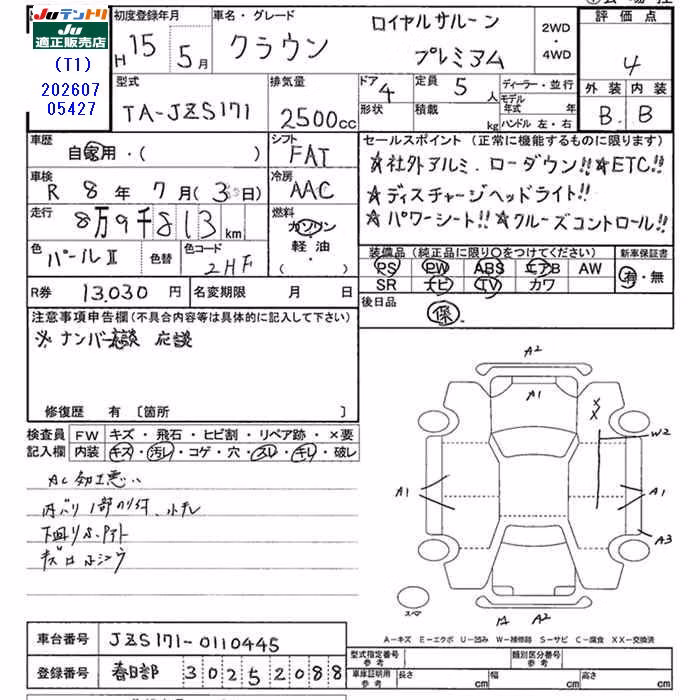 Juテントリ
Ju
適正販売店
(T1)
202607
05427
初度登録年月
H 15 5月
車名・グレード
クラウン
ロイヤルサルーン
プレミアム
2WD
・
4WD
評価点
4
外装 内装
B B
型式
TA-JZS171
排気量
2500cc
ドア 4
形状
定員 5人
積載 kg
ディーラー・並行
モデル年式 年
ハンドル 左・右
車歴
自家用・( )
シフト
FAT
車検
R 8年 7月(3 日)
冷房
AAC
走行
8万9千813km
燃料
ガソリン
軽油
・( )
色 パールⅡ
色替
色コード
2HF
R券 13.030円
名変期限 月 日
セールスポイント(正常に機能するものに限ります)
☆社外アルミ.ローダウン!!☆ETC!!
☆ディスチャージヘッドライト!!
☆パワーシート!!☆クルーズコントロール!!
装備品(純正品に限り○をつけてください)
新車保証書
PS PW ABS エアB AW
SR ナビ TV カワ
有・無
後日品
保
注意事項申告欄(不具合内容等は具体的に記入して下さい)
※ナンバー 応談
修復歴 有 [箇所 ]
検査員
記入欄
FW キズ・飛石・ヒビ割・リペア跡・×要
内装 キズ・汚レ・コゲ・穴・スレ・キレ・破レ
A2
A1
XX
W2
A1
A1
A3
スペア
A2
A-キズ E-エクボ U-凹み W-補修跡 S-サビ C-腐食 XX-交換済
車台番号 JZS171-0110445
登録番号 春日部 302 52088
型式指定番号
参考
類別区分番号
参考
車庫証明用
参考
長さ cm
幅 cm
高さ cm